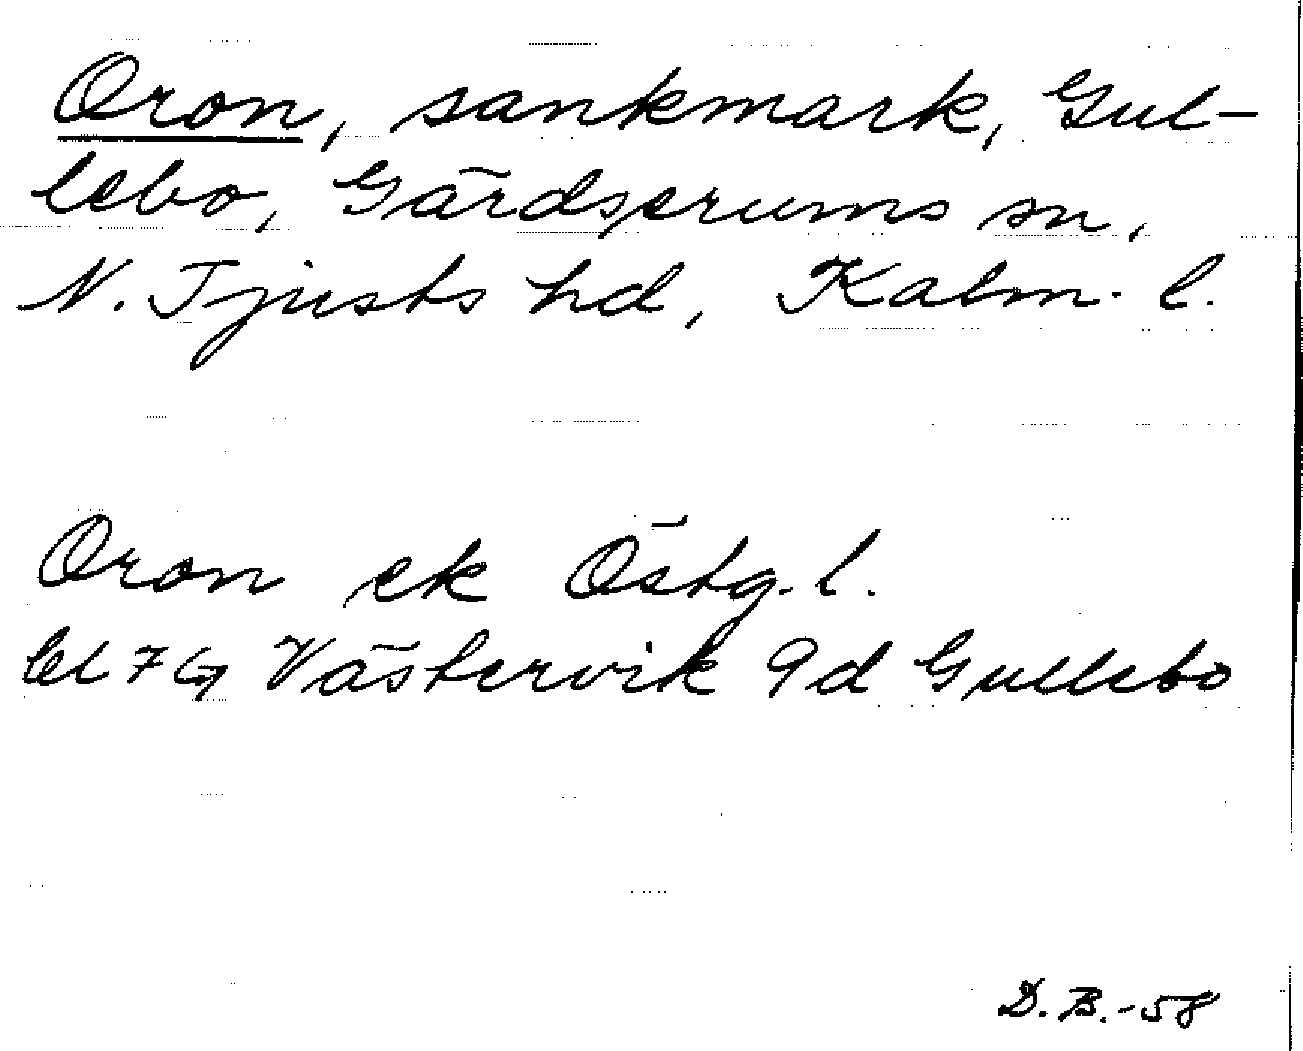 Oron, sankmark, Gul-
lebo, Gärdserums sn,
N. Tjusts hd, Kalm. l.
Oron ek Östg. l.
bl 7 G Västervik 9d Gullebo
D. B. -58